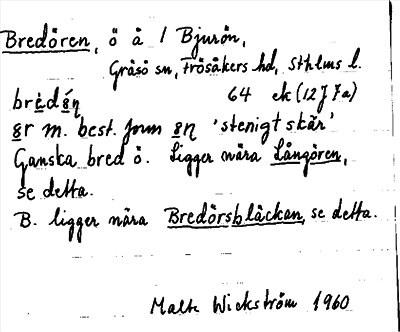 Bredören, ö å / Bjurön,
Gräsö sn, Frösåkers hd, Sthlms l.
64 ek (12J7a)
brèdø̀ņ
ør m. best. form øņ 'stenigt skär'
Ganska bred ö. Ligger nära Långören,
se detta.
B. ligger nära Bredörsbläckan, se detta.
Malte Wickström 1960